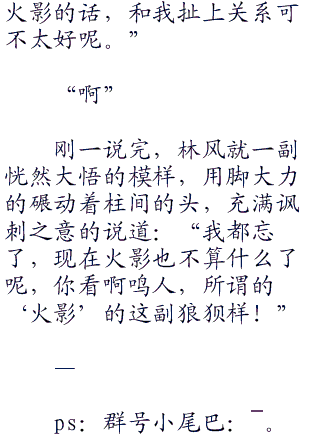 火影的话，和我扯上关系可
不太好呢。”
“啊”
刚一说完，林风就一副
恍然大悟的模样，用脚大力
的碾动着柱间的头，充满讽
刺之意的说道：“我都忘
了，现在火影也不算什么了
呢，你看啊鸣人，所谓的
‘火影’的这副狼狈样！”
—
ps：群号小尾巴：¯。